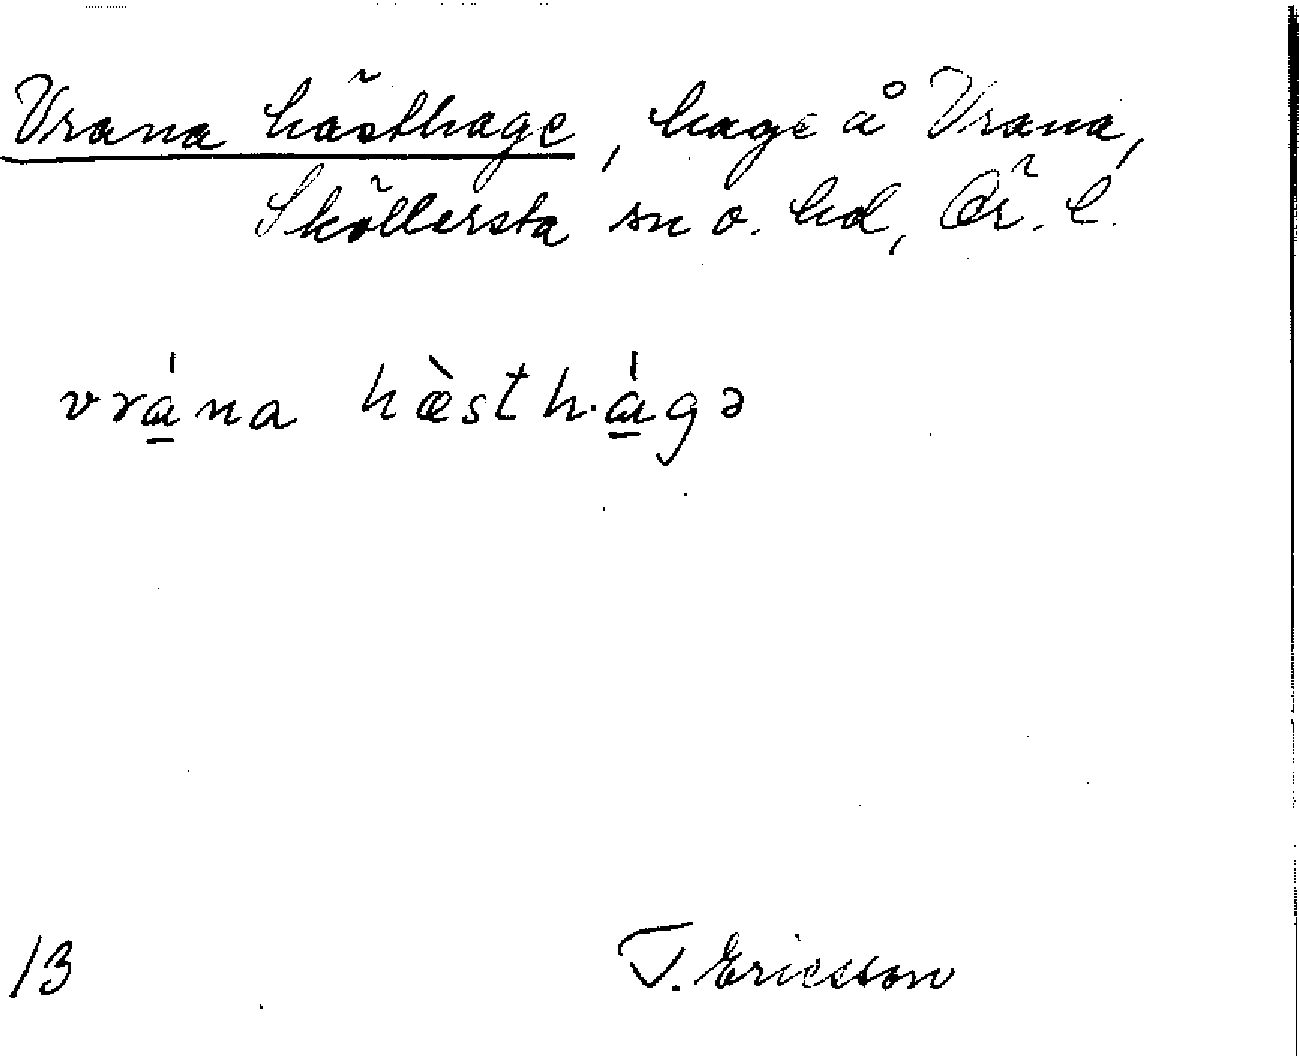 Vrana hästhage, hage å Vrana,
Sköllersta sn o. hd, Ör. l.
vrána hæ̀sth.ágə
13 T. Ericsson